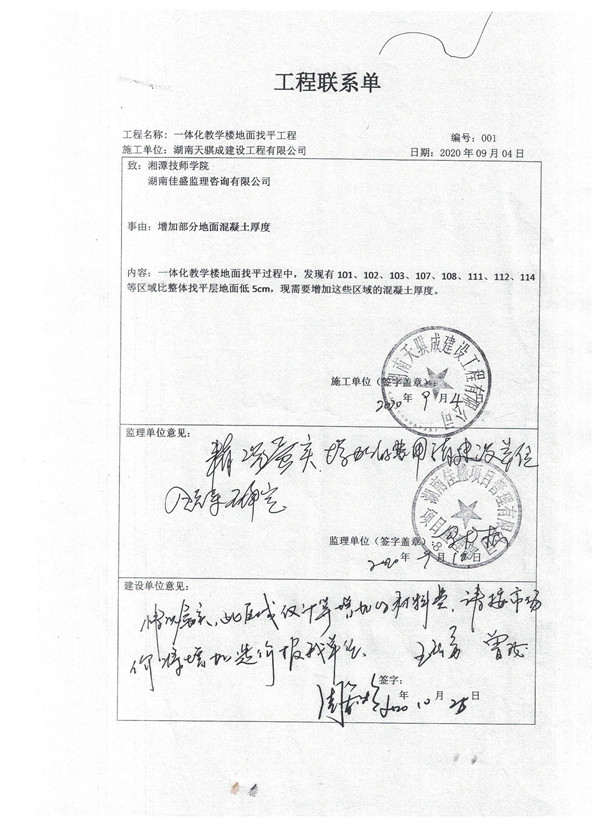 工程联系单
工程名称：一体化教学楼地面找平工程 编号：001
施工单位：湖南天骐成建设工程有限公司 日期：2020年09月04日
致：湘潭技师学院
湖南佳盛监理咨询有限公司
事由：增加部分地面混凝土厚度
内容：一体化教学楼地面找平过程中，发现有101、102、103、107、108、111、112、114
等区域比整体找平层地面低5cm，现需要增加这些区域的混凝土厚度。
湖南天骐成建设工程有限公司
施工单位（签字盖章）：
2020年9月4
监理单位意见：
情况属实，增加的费用请建设单位
监理单位（签字盖章）
2020年9月 日
建设单位意见：
情况属实，此区域仅计算增加的材料费，请按市场
价将增加造价报我单位。
签字：
2020年10月25日